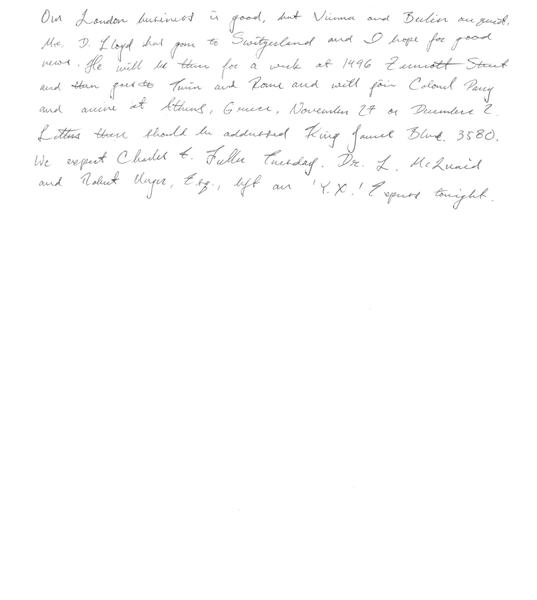 Our London business is good, but Vienna and Berlin are quiet.
Mr. D. Lloyd has gone to Switzerland and I hope for good
news. He will be there for a week at 1496 Zermott Street
and then goes to Turin and Rome and will join Colonel Parry
and arrive at Athens, Greece, November 27 or December 2.
Letters there should be addressed King James Blvd. 3580.
We expect Charles E. Fuller Tuesday. Dr. L. McQuaid
and Robert Unger, Esq., left on 'Y.X.' Express tonight.